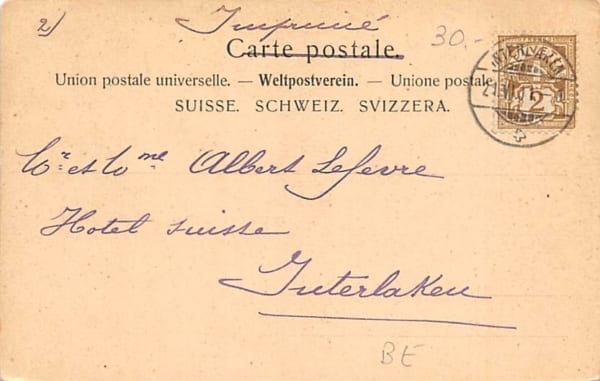 2) Imprimé
30.-
Carte postale.
Union postale universelle. — Weltpostverein. — Unione postale
SUISSE. SCHWEIZ. SVIZZERA.
INTERLAKEN
2
Mr et Mme Albert Lefevre
Hotel Suisse
Interlaken
BE